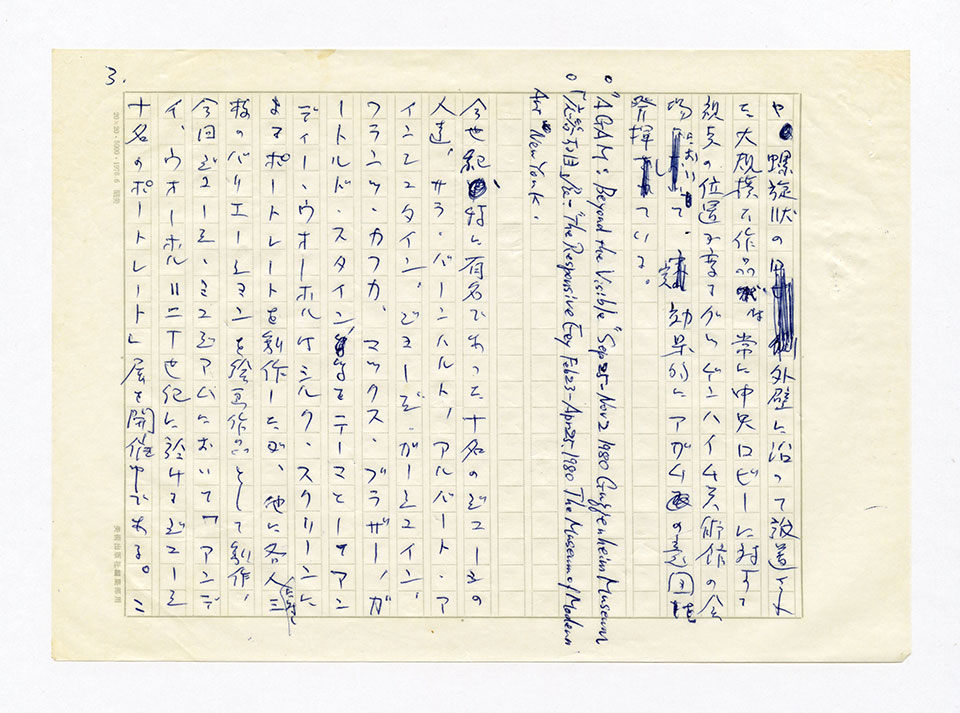 3.
や螺旋状の外壁に沿って設置した
大規模な作品は常に中央ロビーに対する
視点の位置を変えながらグゲンハイム美術館の会
場において、効果的にアガムの意図を
発揮している。
○"AGAM: Beyond the Visible" Sep25-Nov2 1980 Guggenheim Museum
○「応答する目」"The Responsive Eye Feb23-Apr25.1980 The Museum of Modern
Art New York.
今世紀、特に有名であった十名のジューイッシュの
人達、サラ・バーンハルト、アルバート・ア
インシュタイン、ジョージ・ガーシュイン、
フランツ・カフカ、マックス・ブラザー、ガ
ートルド・スタイン等をテーマとしてアン
ディー・ウオーホルはシルク・スクリーンに
よるポートレートを制作したが、他に各人三
枚のバリエーションを絵画作品として制作、
今回ジューイッシュ・ミュージアムにおいて「アンデ
イ・ウオーホル＝二十世紀に於けるジューイッシュ
十名のポートレート」展を開催中である。ニ
20×20-1000-1978.6
美術出版社編集部用